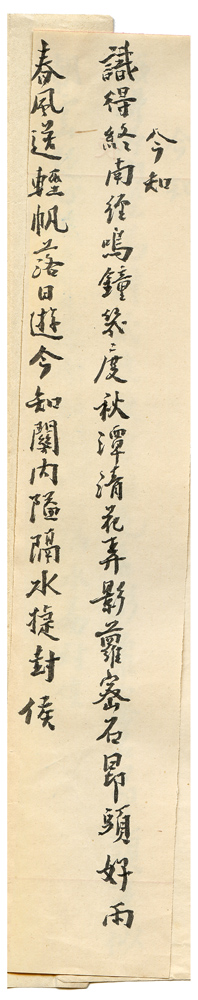 今知
識得終南徑鳴鐘幾度秋潭清花弄影蘿密石昂頭好雨
春風送輕帆落日遊今知關內隘隔水捷封侯